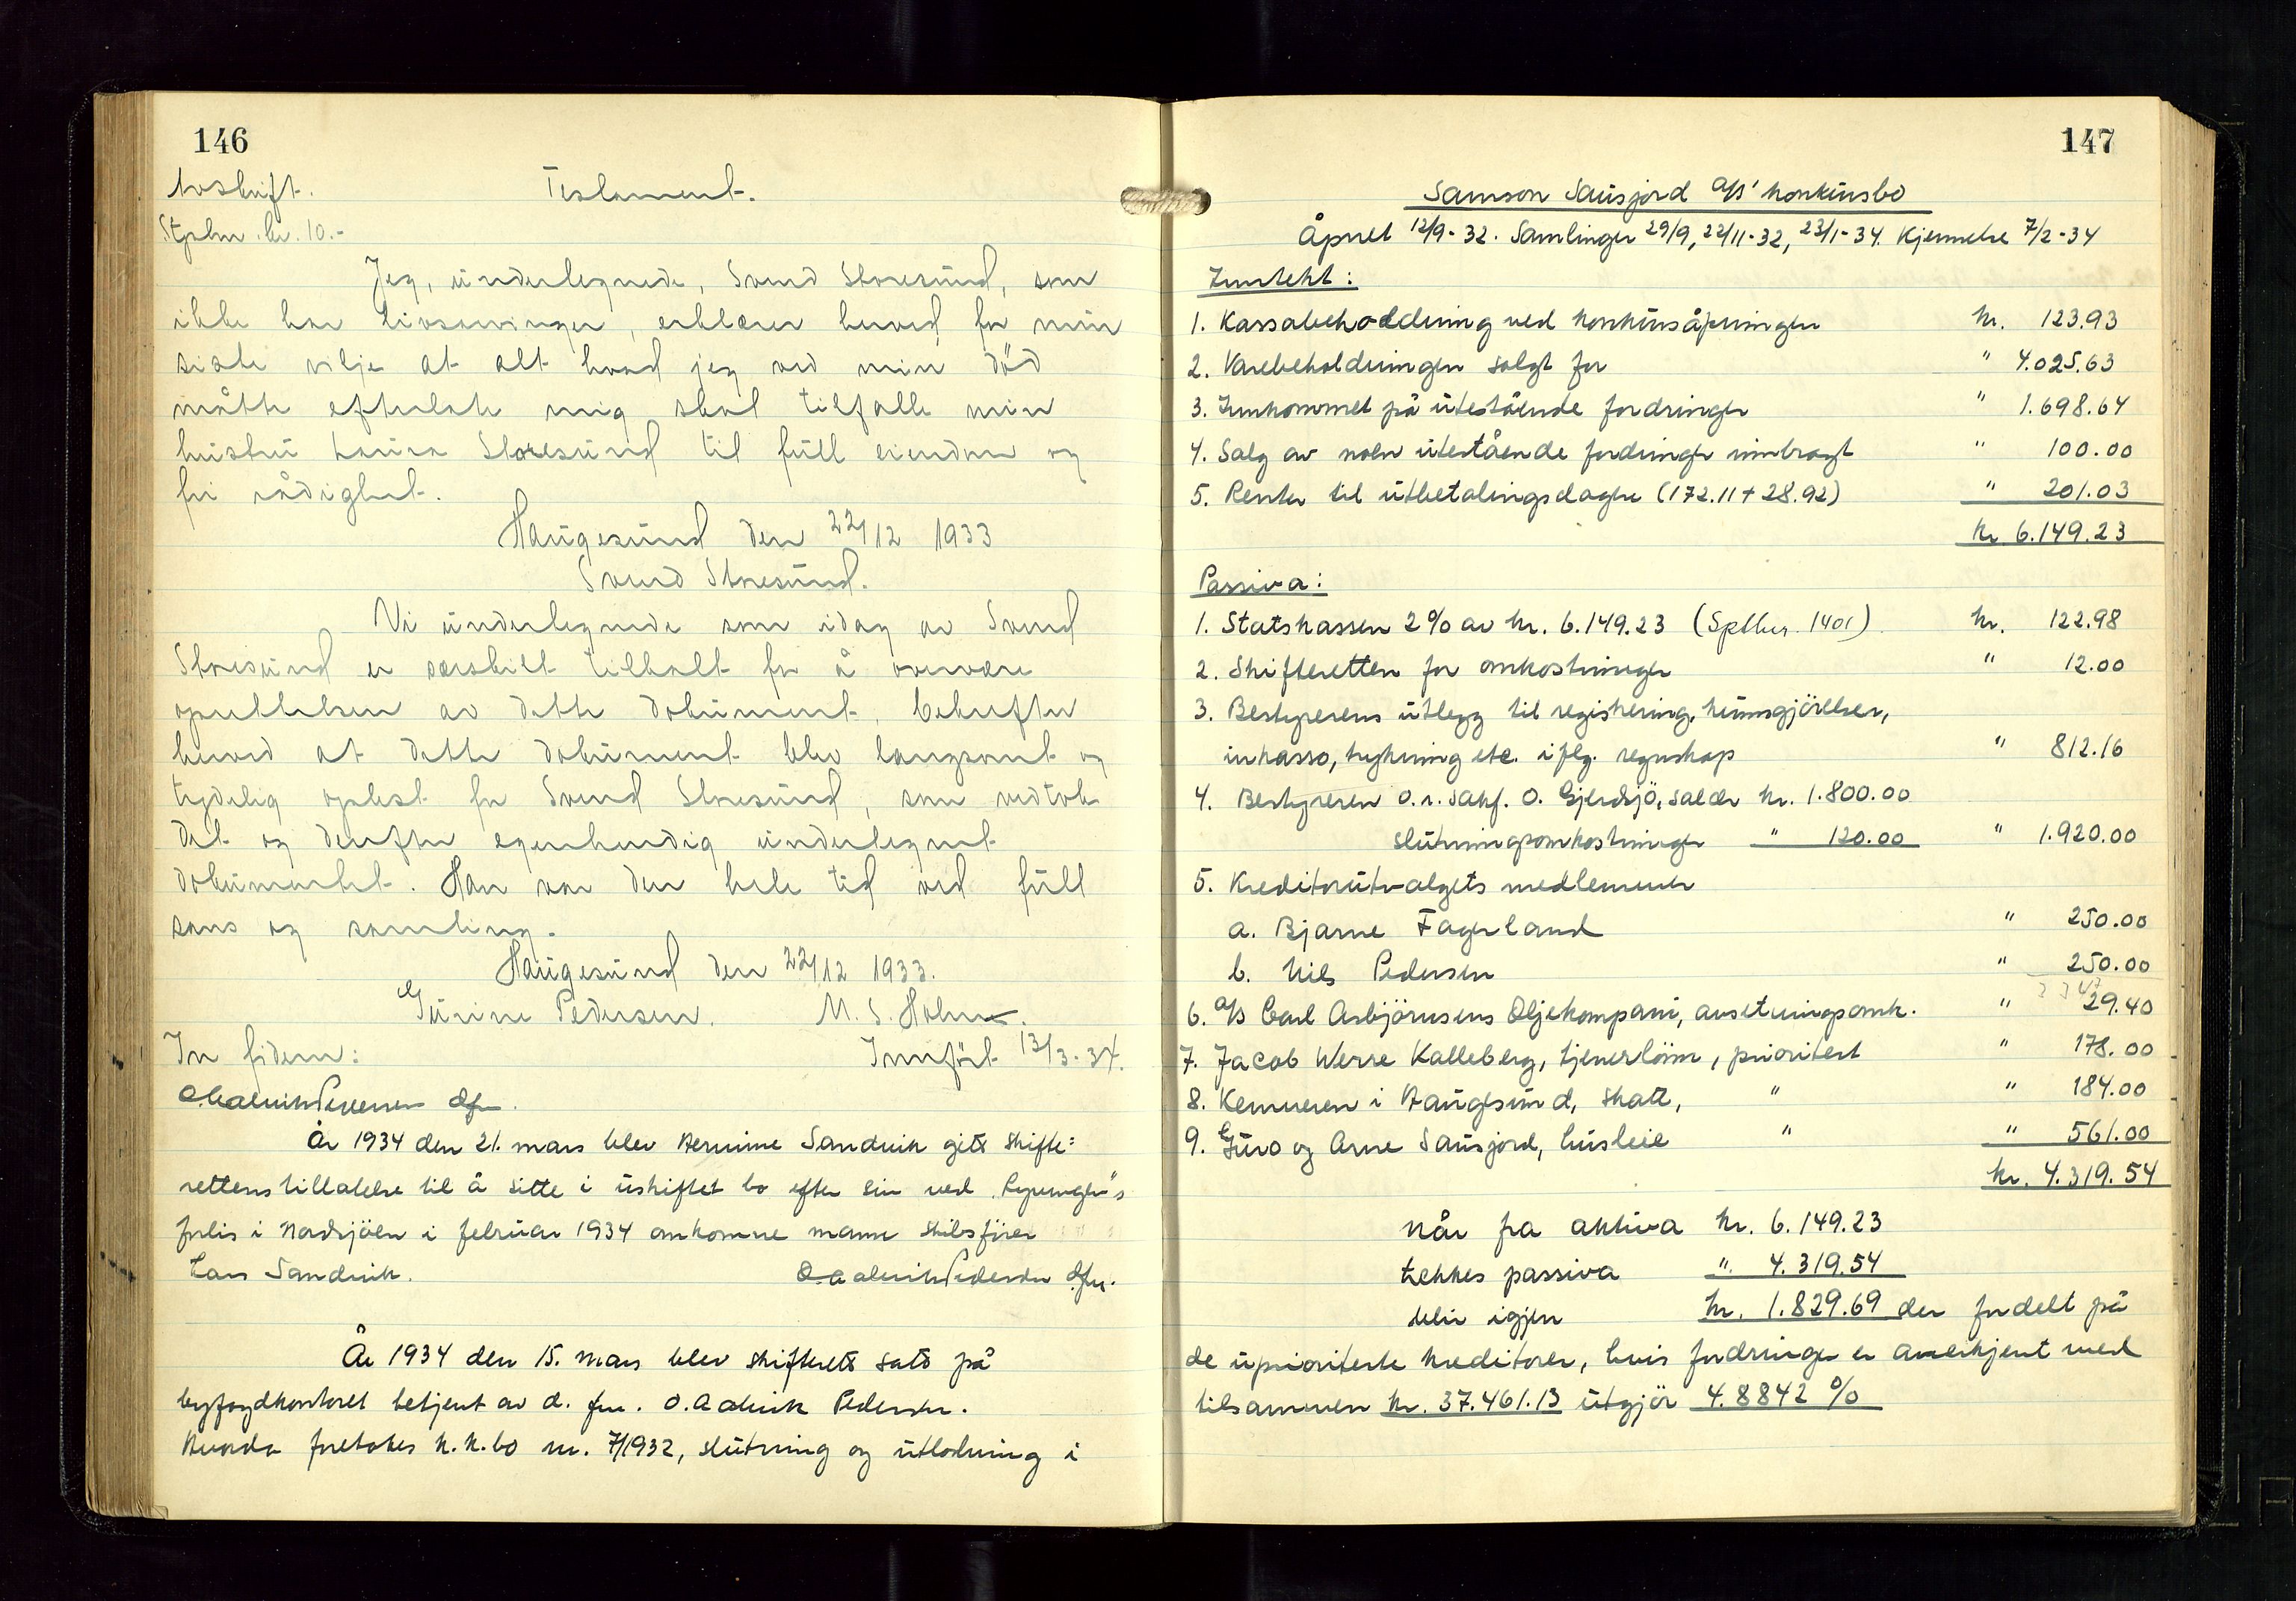 146
Avskrift. Testament.
Stpln. kr. 10.-
Jeg, undertegnede, Svend Storesund, som
ikke har livsarvinger, erklærer herved for min
siste vilje at alt hvad jeg ved min död
måtte efterlate mig skal tilfalle min
hustru Laura Storesund til full eiendom og
fri rådighet.
Haugesund den 22/12 1933
Svend Storesund.
Vi undertegnede som idag av Svend
Storesund er særskilt tilkalt for å overvære
oprettelsen av dette dokument, bekrefter
herved at dette dokument blev langsomt og
tydelig oplest for Svend Storesund, som vedtok
det og derefter egenhendig undertegnet
dokumentet. Han var den hele tid ved full
sans og samling.
Haugesund den 22/12 1933.
Gurine Pedersen. M. S. Holm.
In fidem: Innfört 13/3-34.
O. Aalvik Pedersen dfm.
År 1934 den 21. mars blev Hermine Sandvik gitt skifte=
rettens tillatelse til å sitte i uskiftet bo efter sin ved "Rypungen"s
forlis i Nordsjöen i februar 1934 omkomne mann skibsförer
Lars Sandvik. O. Aalvik Pedersen dfm.
År 1934 den 15. mars blev skifterett satt på
byfogdkontoret betjent av d. fm. O. Aalvik Pedersen.
Hvorda foretokes k.k.bo nr. 7/1932, slutning og utlodning i
147
Samson Sausjord A/S' konkursbo
Åpnet 12/9-32. Samlinger 29/9, 22/11-32, 23/1-34. Kjennelse 7/2-34
Inntekt:
1. Kassabeholdning ved konkursåpningen kr. 123.93
2. Varebeholdningen solgt for " 4.025.63
3. Innkommet på utestående fordringer " 1.698.64
4. Salg av noen utestående fordringer innbragt " 100.00
5. Renter til utbetalingsdagen (172.11 + 28.92) " 201.03
kr 6.149.23
Passiva:
1. Statskassen 2% av kr. 6.149.23 kr. 122.98
2. Skifteretten for omkostninger " 12.00
3. Bestyrerens utlegg til registrering, kunngjörelser,
inkasso, trykning etc. iflg. regnskap " 812.16
4. Bestyreren o.r.sakf. O. Gjerdsjö, salær kr. 1.800.00
slutningsomkostninger " 120.00 " 1.920.00
5. Kreditorutvalgets medlemmer
a. Bjarne Fagerland " 250.00
b. Nils Pedersen " 250.00
6. A/S Carl Asbjörnsens Oljekompani, avsetningsomk. " 29.40
7. Jacob Werre Kalleberg, tjenerlönn, prioritert " 178.00
8. Kemneren i Haugesund, skatt, " " 184.00
9. Guro og Arne Sausjord, husleie " " 561.00
kr. 4.319.54
Når fra aktiva kr. 6.149.23
trekkes passiva " 4.319.54
blir igjen kr. 1.829.69 der fordelt på
de uprioriterte kreditorer, hvis fordringer er anerkjent med
tilsammen kr. 37.461.13 utgjör 4.8842 %